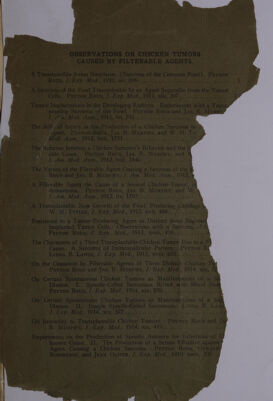 OBSERVATIONS ON CHICKEN TUMORS
CAUSED BY FILTERABLE AGENTS.
A Transplantable Avian Neoplasm. (Sarcoma of the Common Fowl). Peyton
Rous, J. Exp. Med., 1910, xii, 696.
A Sarcoma of the Fowl Transmissible by an Agent Separable from the Tumor
Cells. Peyton Rous, J. Exp. Med., 1911, xiii, 397.
Tumor Implantations in the Developing Embryo. Experiments with a Trans-
missible Sarcoma of the Fowl. Peyton Rous and Jas. B. Murphy,
J. Am. Med. Assn., 1911, lvi, 741.
The Rôle of Injury in the Production of a Chicken Sarcoma by a
Agent. Peyton Rous, Jas. B. Murphy, and W. H.
J. Am. Med. Assn., 1912, lviii, 1751.
The Relation between a Chicken Sarcoma's Behavior and the
able Cause. Peyton Rous, Jas. B. Murphy, and
J. Am. Med. Assn., 1912, lviii, 1840.
The Nature of the Filterable Agent Causing a Sarcoma of the
Rous and Jas. B. Murphy, J. Am. Med. Assn., 1912,
A Filterable Agent the Cause of a Second Chicken-Tumor,
Peyton Rous, Jas. B. Murphy, and W.
J. Am. Med. Assn., 1912, lix, 1793.
A Transplantable New Growth of the Fowl, Producing
W. H. Tytler, J. Exp. Med., 1913, xvii, 466.
Resistance to a Tumor-Producing Agent as Distinct from
Implanted Tumor Cells. Observations with a
Peyton Rous, J. Exp. Med., 1913, xviii, 416.
The Characters of a Third Transplantable Chicken Tumor Due to a
Cause. A Sarcoma of Intracanalicular Pattern. Peyton
Linda B. Lange, J. Exp. Med., 1913, xviii, 651.
On the Causation by Filterable Agents of Three Distinct Chicken
Peyton Rous and Jas. B. Murphy, J. Exp. Med., 1914, xix,
On Certain Spontaneous Chicken Tumors as Manifestations of a
Disease. I. Spindle-Celled Sarcomata Rifted with Blood
Peyton Rous, J. Exp. Med., 1914, xix, 570.
On Certain Spontaneous Chicken Tumors as Manifestations of a
Disease. II. Simple Spindle-Celled Sarcomata. Linda B. Lange,
J. Exp. Med., 1914, xix, 577.
On Immunity to Transplantable Chicken Tumors. Peyton Rous and
B. Murphy, J. Exp. Med., 1914, xx, 419.
Experiments on the Production of Specific Antisera for Infections of
known Cause. II. The Production of a Serum Effective against
Agent Causing a Chicken Sarcoma. Peyton Rous,
Robertson, and Jean Oliver, J. Exp. Med., 1919, xxix,